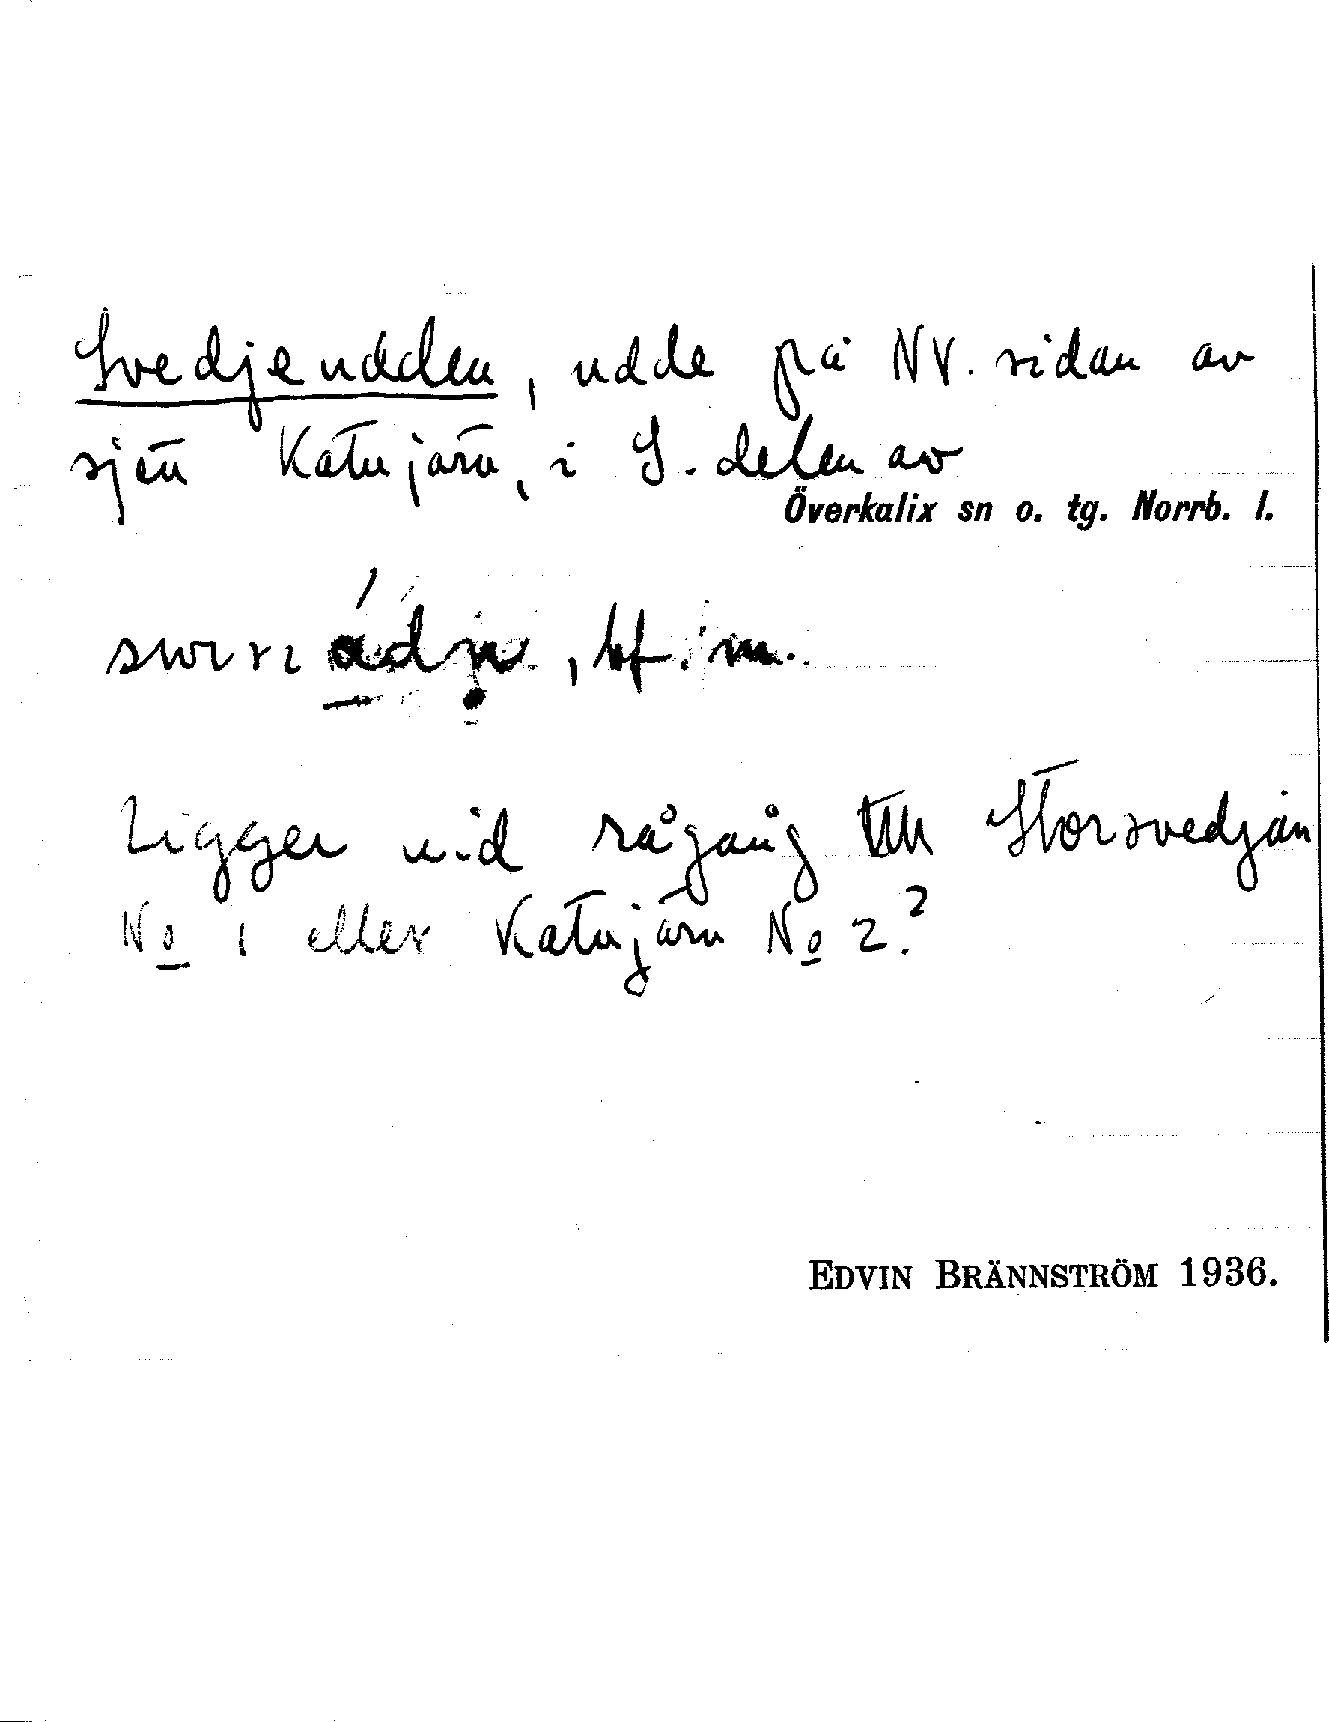 Svedjeudden, udde på NV. sidan av
sjön Katujärv, i S. delen av
Överkalix sn o. tg. Norrb. l.
, bf. m.
Ligger vid rågång till Storsvedjan
No 1 eller Katujärv No 2.?
EDVIN BRÄNNSTRÖM 1936.